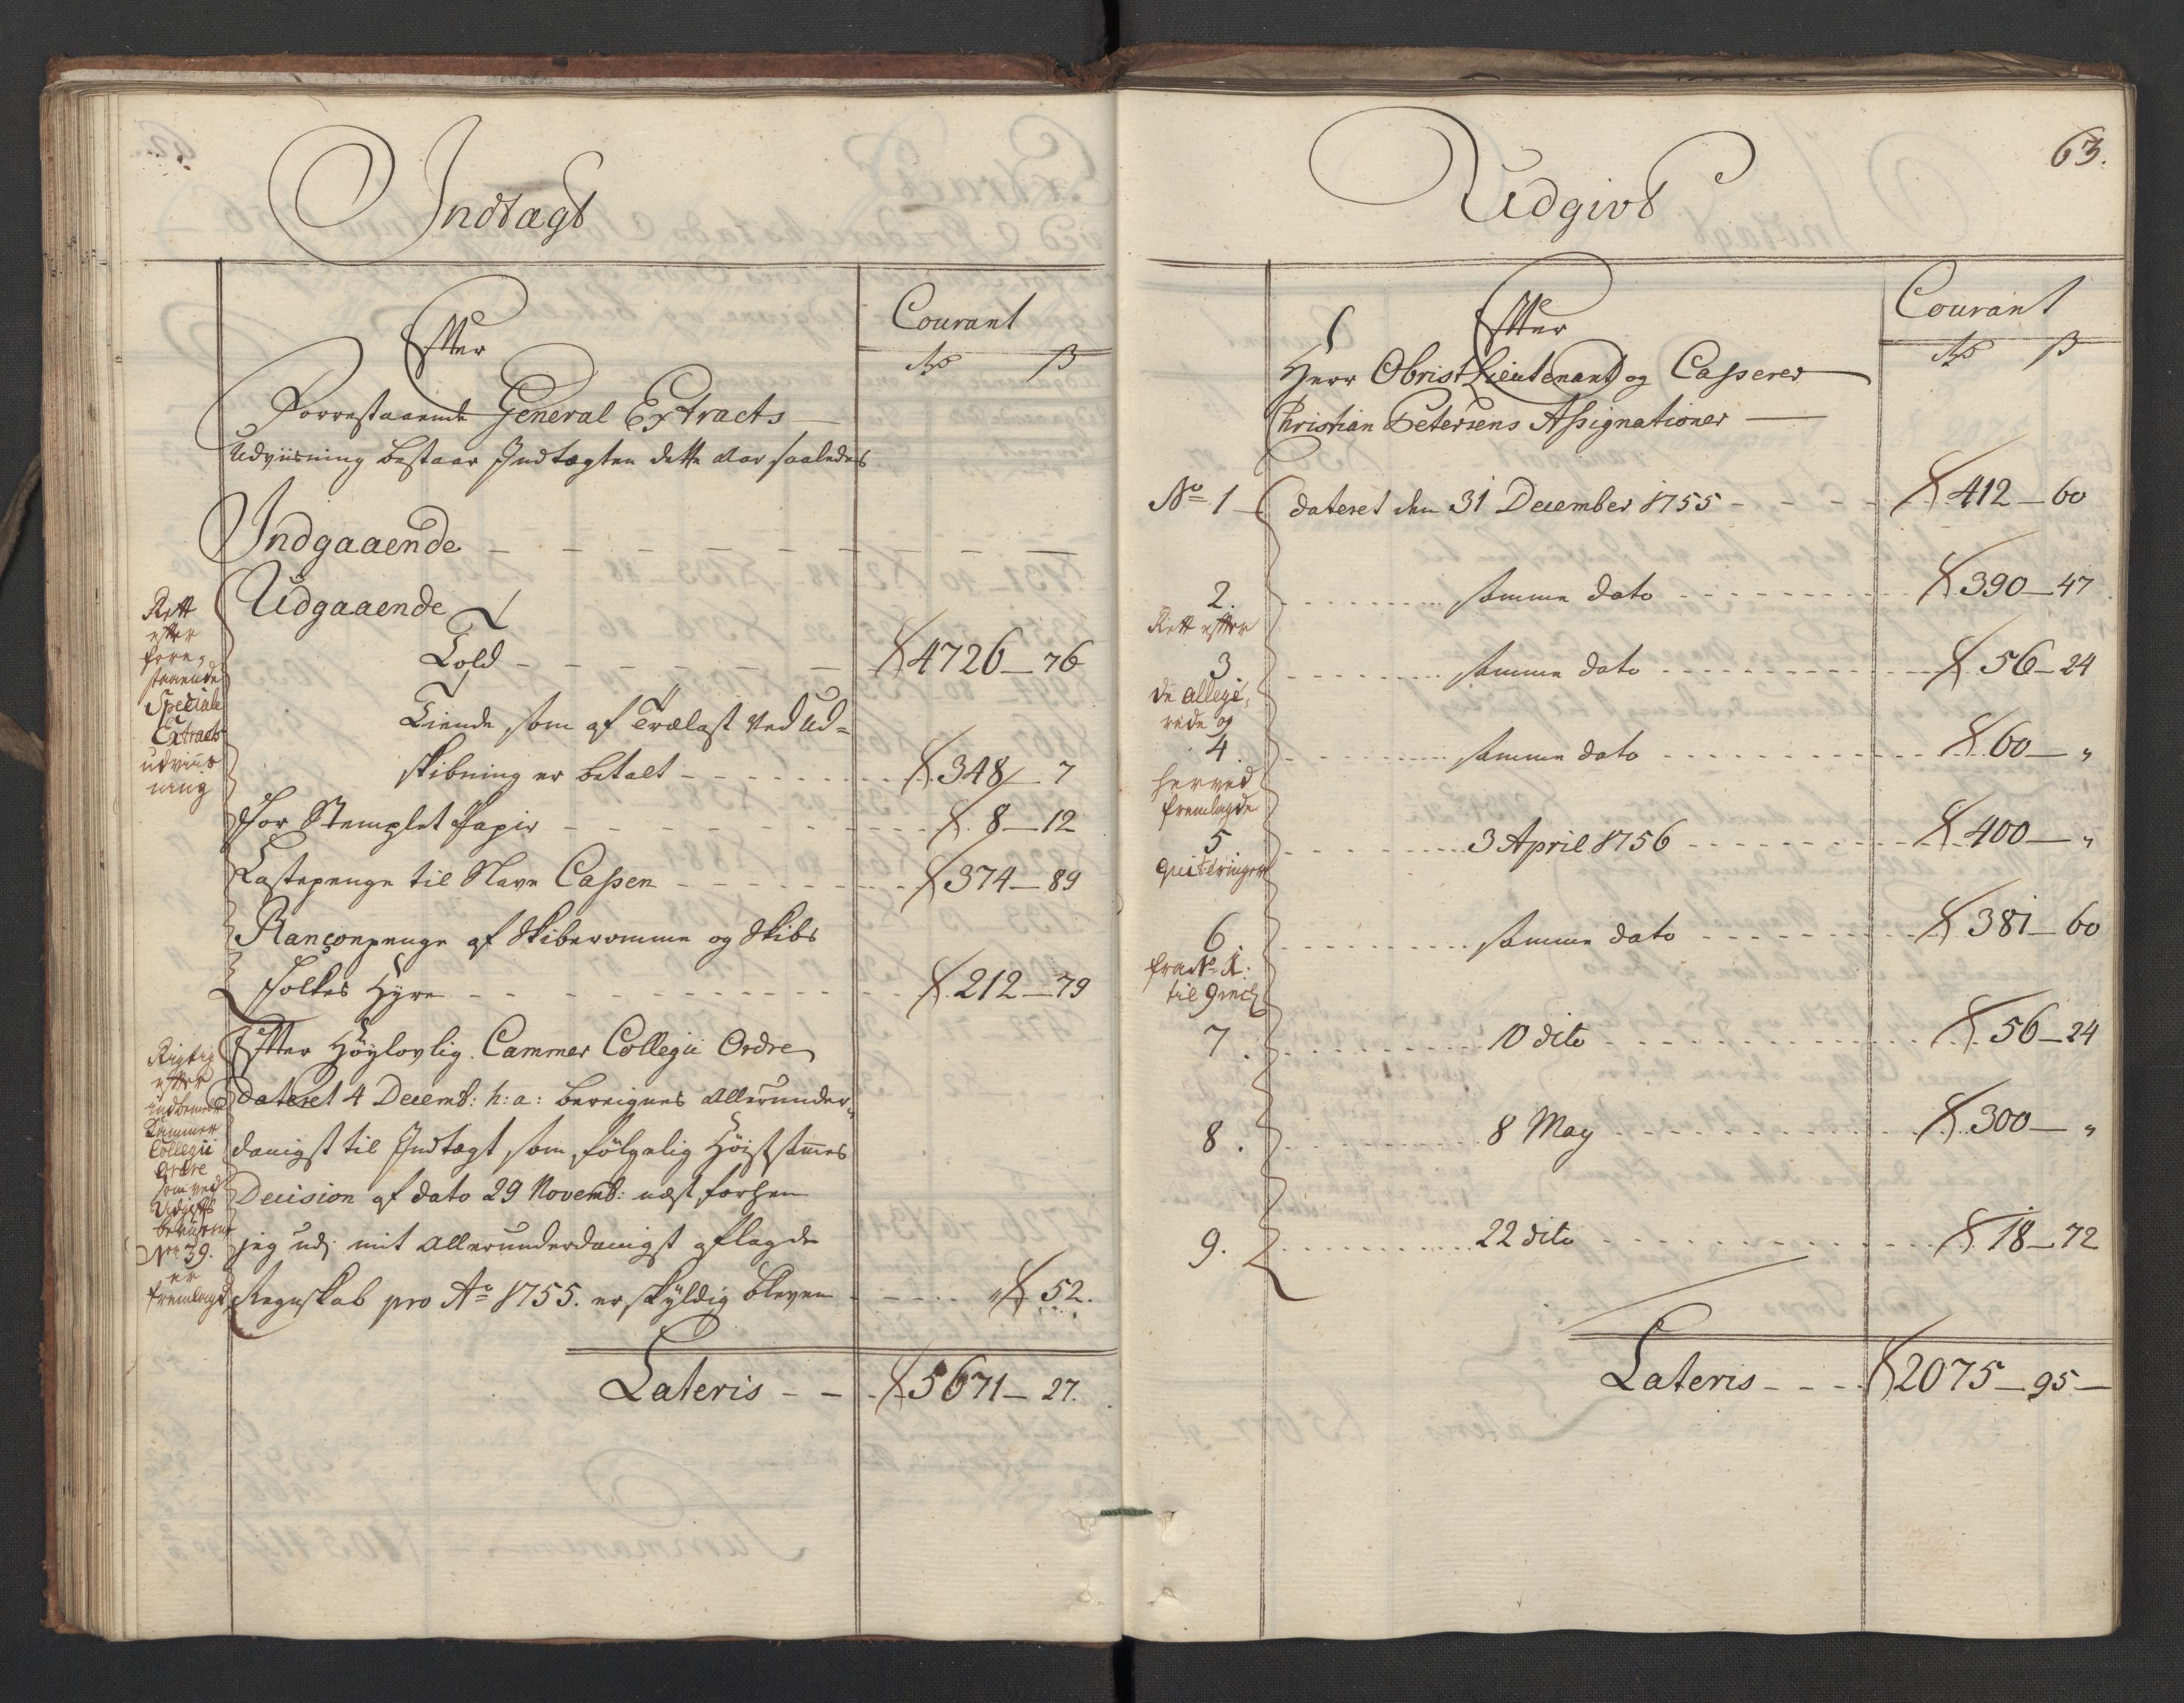 Indtægt
Courant
Rdr ß
Efter
Forrestaaende General Extracts
Udviisning bestaar Indtægten dette Aar saaledes
Indgaaende
Udgaaende
Told 4726 — 76
Tiende som af Trælast ved Ud=
skibning er betalt 348 — 7
For Stemplet Papir 8 — 12
Lastepenge til Slave Cassen 374 — 89
Rançonpenge af Skiberomme og Skibs
Folkes Hyre 212 — 79
Efter Høylovlig Cammer Collegii Ordre
dateret 4 Decemb: h: a: bereignes allerunder=
danigst til Indtægt som følgelig Høistsammes
Decision af dato 29 Novemb: næst forhen
jeg udj mit allerunderdanigst aflagde
Regnskab pro Ao 1755. er skyldig bleven 52.
Lateris 5671 — 27.
Rett
efter
fore=
staaende
Speciale
Extracts
udviis
ning
Rigtig
efter
indbemelte
Kammer
Collegii
Ordre
som ved
Udgifts
beviserne
No 39.
er
fremlagd
63.
Udgivt
Courant
Rdr ß
Efter
Herr Obrist Lieutenant og Casserer
Christian Petersens Assignationer
No 1 dateret den 31 December 1755 412 — 60
2. samme dato 390 — 47
Rett efter
3 samme dato 56 — 24
de allegi=
rede og
4. samme dato 60 — "
herved
fremlagde
5 3 April 1756 400 — "
quitteringer
6 samme dato 381 — 60
fra No 1:
til 9 incl
7. 10 dito 56 — 24
8. 8 May 300 — "
9. 22 dito 18 — 72
Lateris 2075 — 95 —